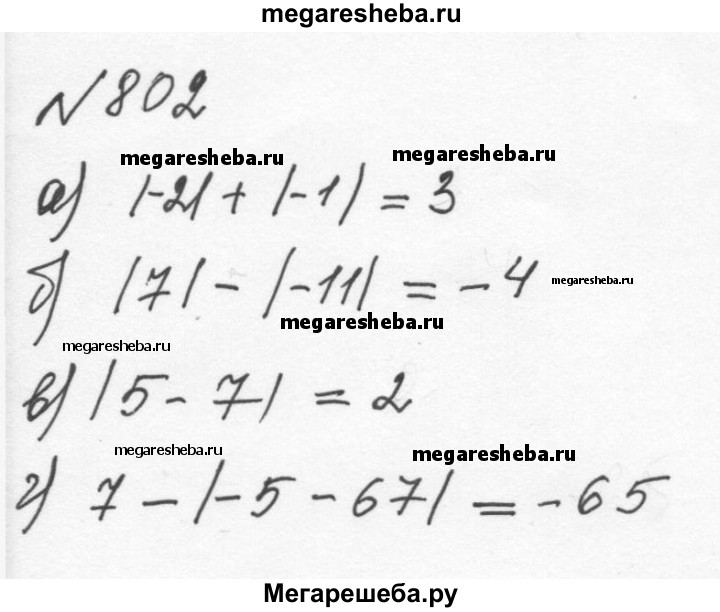 megaresheba.ru
№ 802
megaresheba.ru megaresheba.ru
а) |-2| + |-1| = 3
б) |7| - |-11| = -4 megaresheba.ru
megaresheba.ru
megaresheba.ru
в) |5 - 7| = 2
megaresheba.ru megaresheba.ru
г) 7 - |-5 - 67| = -65
Мегарешеба.ру